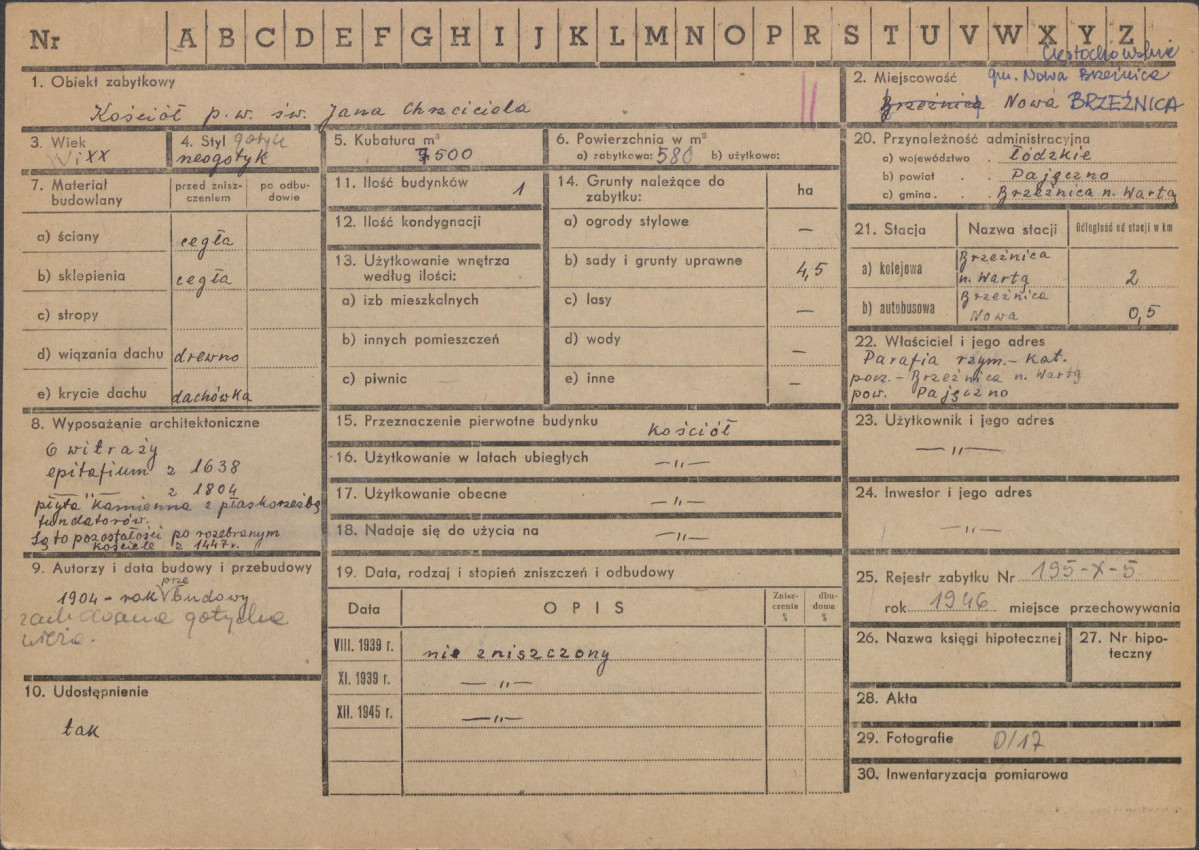 Nr A B C D E F G H I J K L M N O P R S T U V W X Y Z
Częstochowskie
1. Obiekt zabytkowy
Kościół p.w. św. Jana Chrzciciela
2. Miejscowość gm. Nowa Brzeźnica
Brzeźnica Nowa BRZEŹNICA
3. Wiek
XX
4. Styl gotyk
neogotyk
5. Kubatura m³
7500
6. Powierzchnia w m²
a) zabytkowa: 580 b) użytkowa:
7. Materiał budowlany
przed zniszczeniem
po odbudowie
a) ściany cegła
b) sklepienia cegła
c) stropy
d) wiązania dachu drewno
e) krycie dachu dachówka
8. Wyposażenie architektoniczne
6 witraży
epitafium z 1638
—"— z 1804
płyta kamienna z płaskorzeźbą
fundatorów.
Są to pozostałości po rozebranym
kościele z 1447 r.
9. Autorzy i data budowy i przebudowy
1904 - rok przebudowy
zachowana gotycka
wieża.
10. Udostępnienie
tak
11. Ilość budynków 1
12. Ilość kondygnacji
13. Użytkowanie wnętrza
według ilości:
a) izb mieszkalnych
b) innych pomieszczeń
c) piwnic —
14. Grunty należące do
zabytku: ha
a) ogrody stylowe —
b) sady i grunty uprawne 4,5
c) lasy —
d) wody —
e) inne —
15. Przeznaczenie pierwotne budynku kościół
16. Użytkowanie w latach ubiegłych —"—
17. Użytkowanie obecne —"—
18. Nadaje się do użycia na —"—
19. Data, rodzaj i stopień zniszczeń i odbudowy
Data OPIS Zniszczenia % dbudowa %
VIII. 1939 r. nie zniszczony
XI. 1939 r. —"—
XII. 1945 r. —"—
20. Przynależność administracyjna
a) województwo . Łódzkie
b) powiat . . Pajęczno
c) gmina . . Brzeźnica n. Wartą
21. Stacja Nazwa stacji Odległość od stacji w km
a) kolejowa Brzeźnica
n. Wartą 2
b) autobusowa Brzeźnica
Nowa 0,5
22. Właściciel i jego adres
Parafia rzym.- kat.
pocz. - Brzeźnica n. Wartą
pow. Pajęczno
23. Użytkownik i jego adres
—"—
24. Inwestor i jego adres
—"—
25. Rejestr zabytku Nr 195-X-5
rok 1946 miejsce przechowywania
26. Nazwa księgi hipotecznej
27. Nr hipoteczny
28. Akta
29. Fotografie D/17
30. Inwentaryzacja pomiarowa